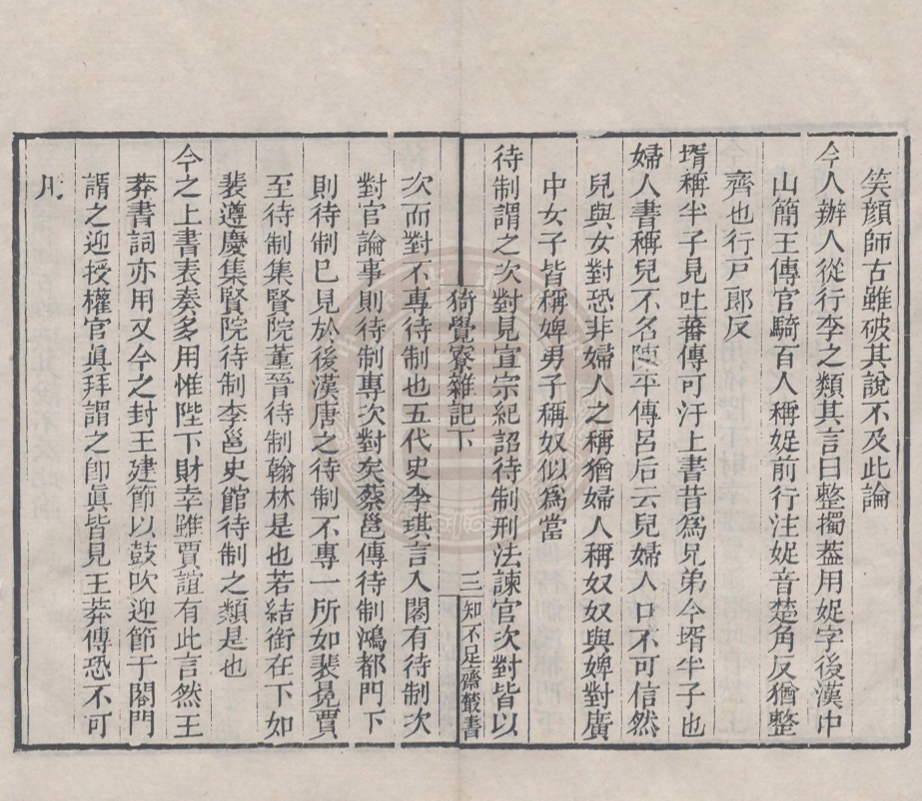 笑顏師古雖破其說不及此論
今人辦人從行李之類其言曰整擉葢用娖字後漢中
山簡王傳官騎百人稱娖前行注娖音楚角反猶整
齊也行戸郎反
壻稱半子見吐蕃傳可汗上書昔爲兄弟今壻半子也
婦人書稱兒不名陳平傳呂后云兒婦人口不可信然
兒與女對恐非婦人之稱猶婦人稱奴奴與婢對廣
中女子皆稱婢男子稱奴似爲當
待制謂之次對見宣宗紀詔待制刑法諫官次對皆以
猗覺寮雜記下
三
知不足齋叢書
次而對不專待制也五代史李琪言入閣有待制次
對官論事則待制專次對矣蔡邕傳待制鴻都門下
則待制已見於後漢唐之待制不專一所如裴冕賈
至待制集賢院董晉待制翰林是也若結銜在下如
裴遵慶集賢院待制李邕史館待制之類是也
今之上書表奏多用惟陛下財幸雖賈誼有此言然王
莽書詞亦用又今之封王建節以鼓吹迎節于閤門
謂之迎授權官眞拜謂之卽眞皆見王莽傳恐不可
用